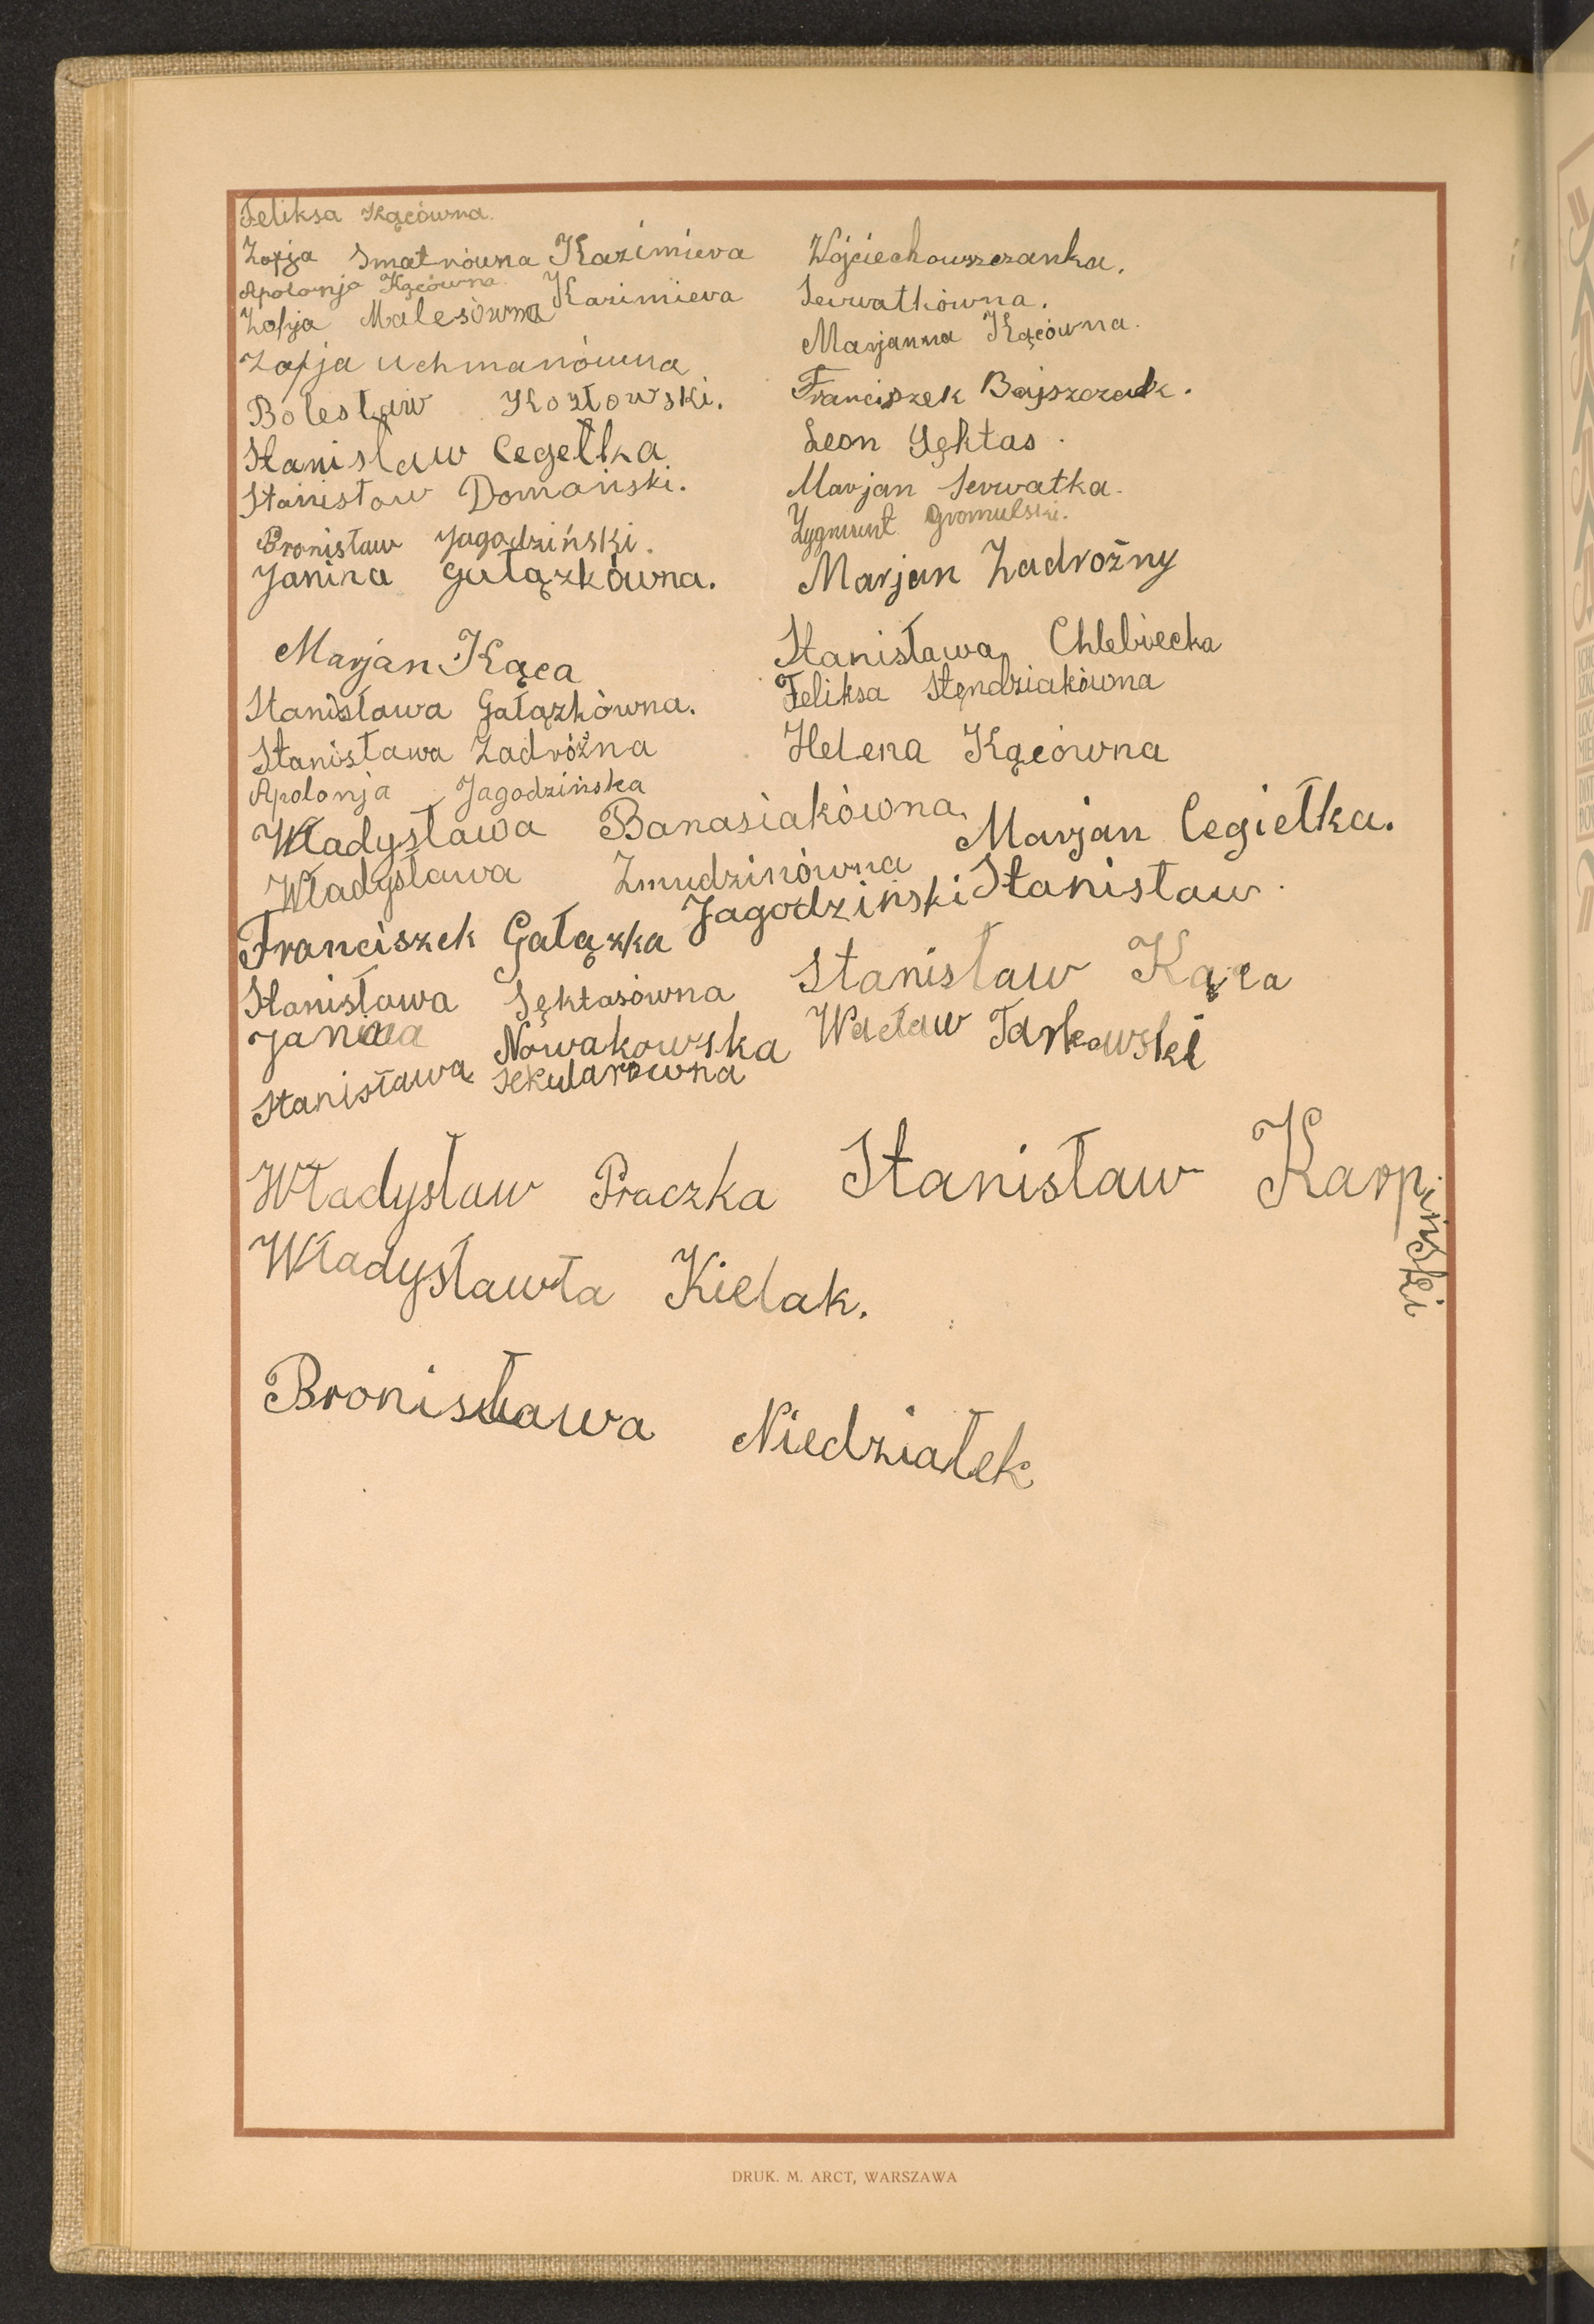 Feliksa Kącówna.
Zofja Smatrówna Kazimiera Wójciechowszczanka.
Apolonja Kącówna.
Zofja Malesówna Kazimiera Serwatkówna.
Marjanna Kącówna.
Zofja Uchmanówna
Bolesław Kozłowski. Franciszek Bajszczak.
Stanisław Cegełka Leon Sęktas.
Stanisław Domański. Marjan Serwatka.
Zygmunt Gromulski.
Bronisław Jagodziński.
Janina Gałązkówna. Marjan Zadrożny
Marjan Kąca Stanisława Chlebiecka
Stanisława Gałązkówna. Feliksa Stęndziakówna
Stanisława Zadróżna Helena Kącówna
Apolonja Jagodzińska
Władysława Banasiakówna. Marjan Cegiełka.
Władysława Zmudzinówna
Jagodziński Stanisław.
Franciszek Gałązka
Stanisława Sęktasówna Stanisław Kąca
Janina Nowakowska Wacław Tarkowski
Stanisława Sekularówna
Władysław Praczka Stanisław Karpiński
Władysławła Kielak.
Bronisława Niedziałek
DRUK. M. ARCT, WARSZAWA